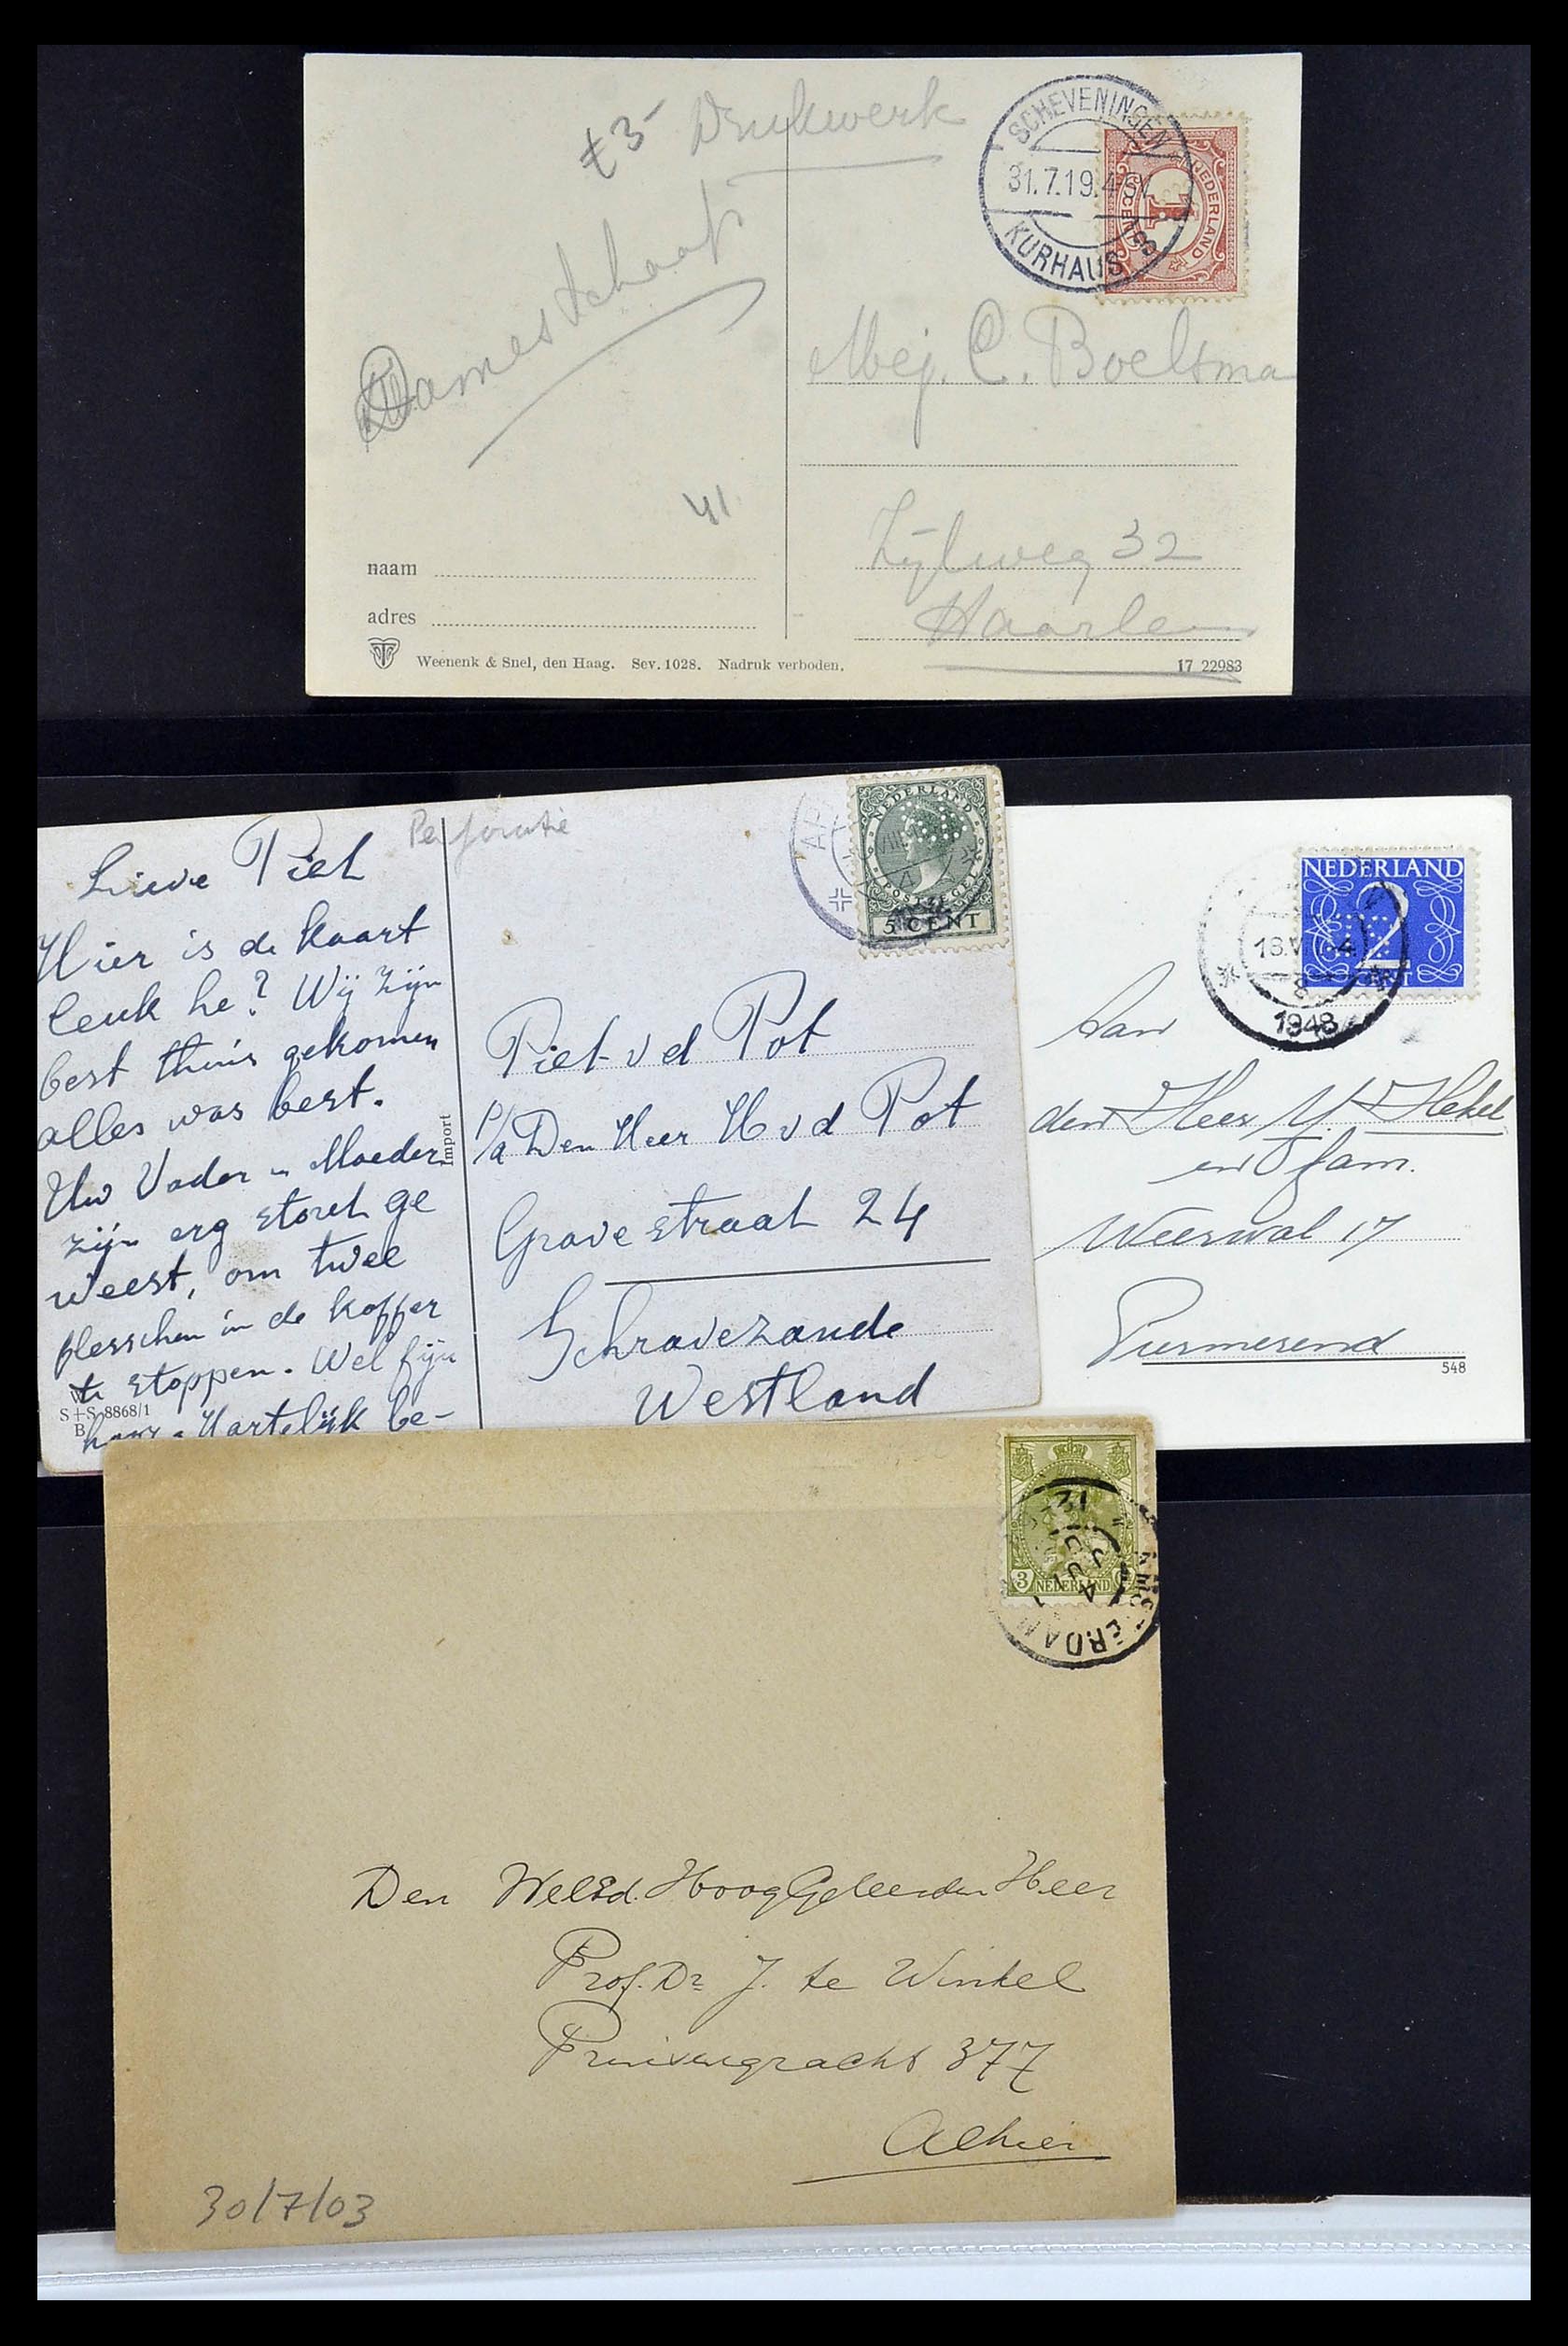 f 3- Drukwerk
SCHEVENINGEN
31.7.19.4-5V
KURHAUS
NEDERLAND
1
CENT
Damesschaats
Mej. C. Boelsma
41
Zijlweg 32
Haarlem
naam
adres
Weenenk & Snel, den Haag. Sev. 1028. Nadruk verboden.
17 22983
Perforatie
NEDERLAND
POSTZEGEL
5 CENT
Lieve Piet
Hier is de kaart
leuk he? Wij zijn
best thuis gekomen
alles was best.
Uw Vader en Moeder
zijn erg stout ge
weest, om twee
flesschen in de koffer
te stoppen. Wel fijn
hoor. Hartelijk be-
S+S 8868/1
B
Import
Piet v d Pot
p/a Den Heer H v d Pot
Gravestraat 24
Schravezande
Westland
NEDERLAND
2
CENT
1948
Aan
den Heer Y Hekel
en fam.
Weerwal 17
Purmerend
548
3 NEDERLAND
Den WelEd. HoogGeleerden Heer
Prof. Dr J. te Winkel
Prinsengracht 377
Alhier
30/7/03